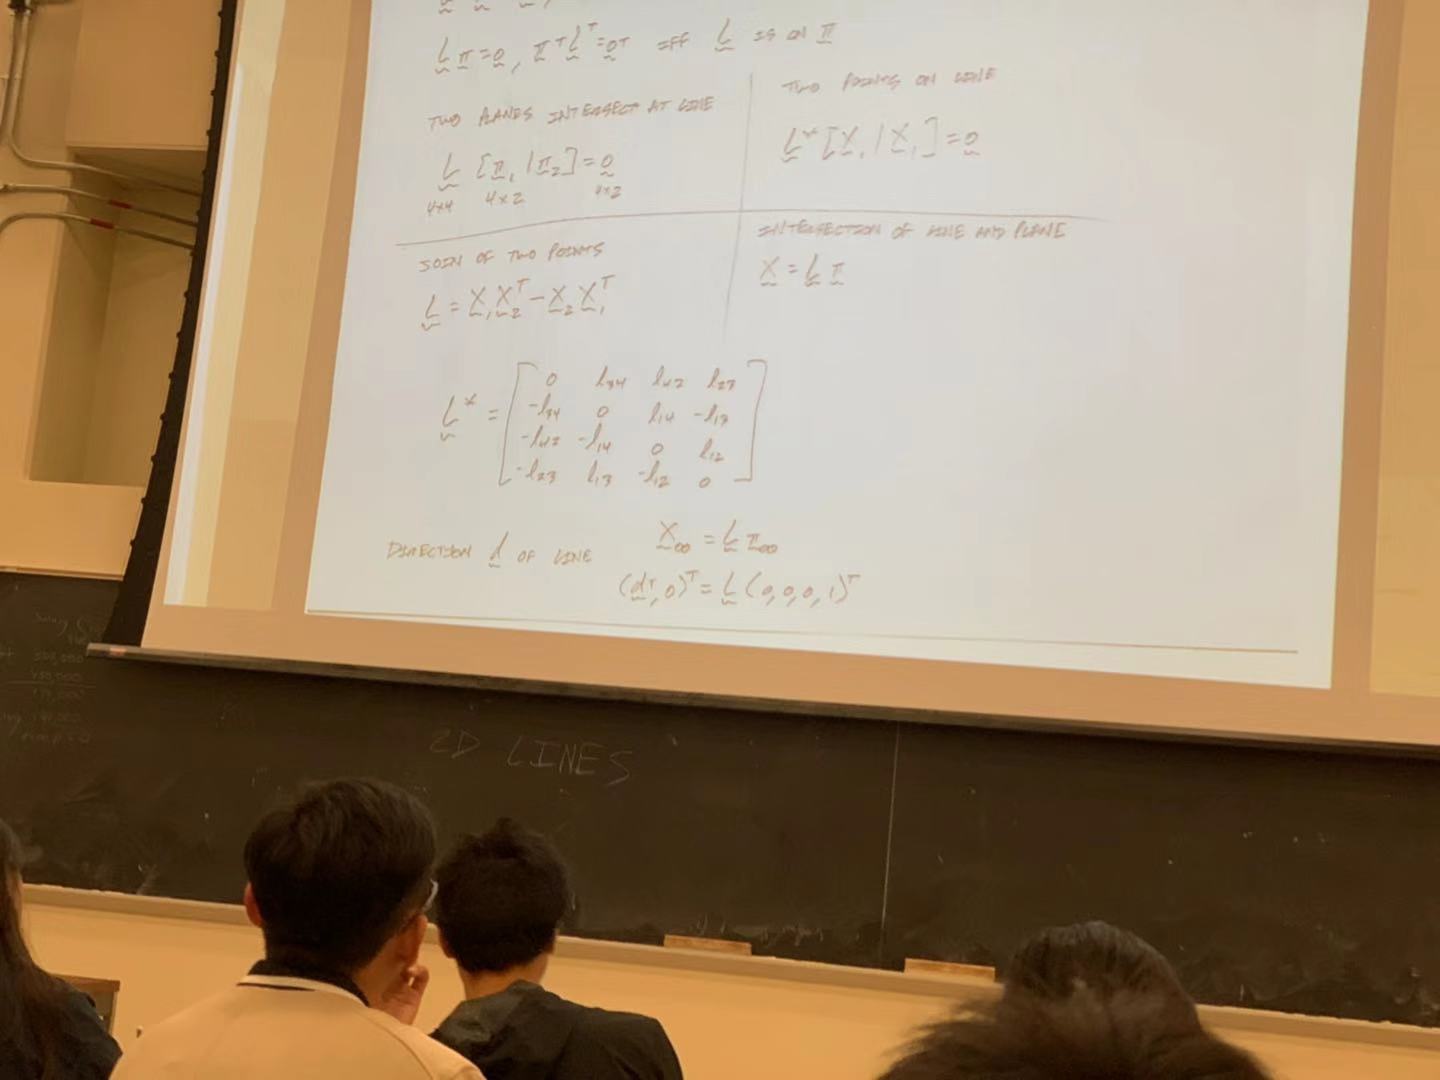 L π = 0, πᵀLᵀ = 0ᵀ IFF L IS ON π
TWO PLANES INTERSECT AT LINE
L [π₁ | π₂] = 0
4×4 4×2 4×2
TWO POINTS ON LINE
L* [X₁ | X₁] = 0
JOIN OF TWO POINTS
L = X₁X₂ᵀ − X₂X₁ᵀ
INTERSECTION OF LINE AND PLANE
X = L π
L* = [ 0 l₃₄ l₄₂ l₂₃
-l₃₄ 0 l₁₄ -l₁₃
-l₄₂ -l₁₄ 0 l₁₂
-l₂₃ l₁₃ -l₁₂ 0 ]
DIRECTION d OF LINE X∞ = L π∞
(dᵀ, 0)ᵀ = L (0, 0, 0, 1)ᵀ
2D LINES